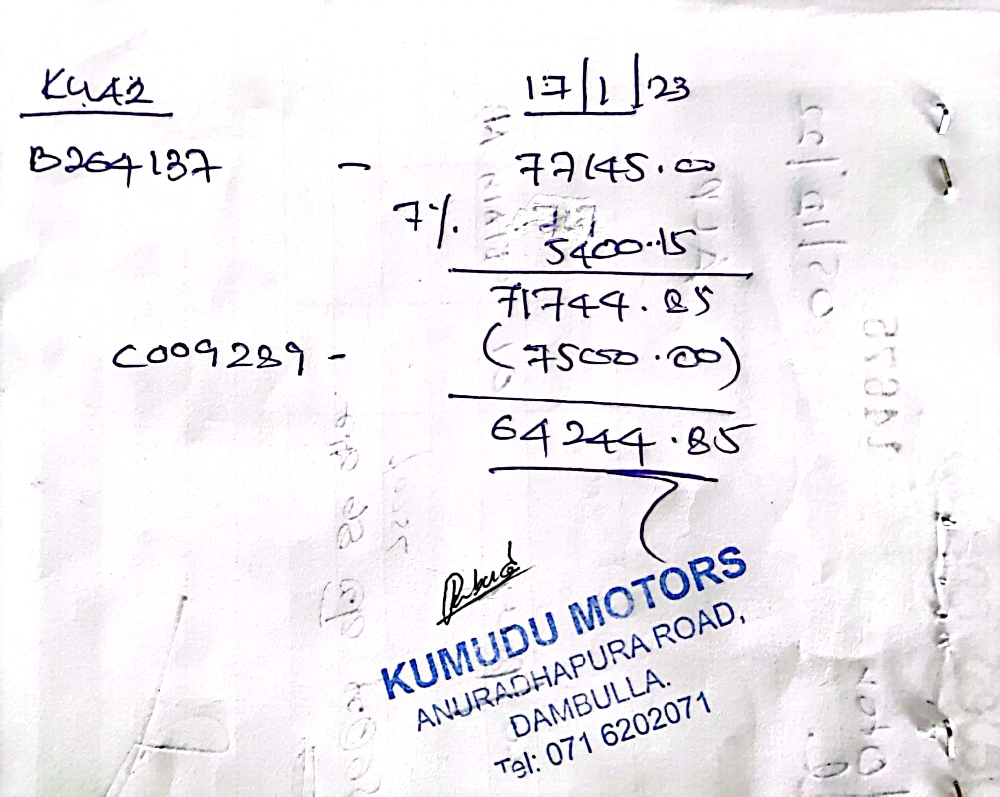 KUA2 17/1/23
B264137 - 77145.00
7%. 5400.15
71744.85
C009289 - (7500.00)
64244.85
KUMUDU MOTORS
ANURADHAPURA ROAD,
DAMBULLA.
Tel: 071 6202071